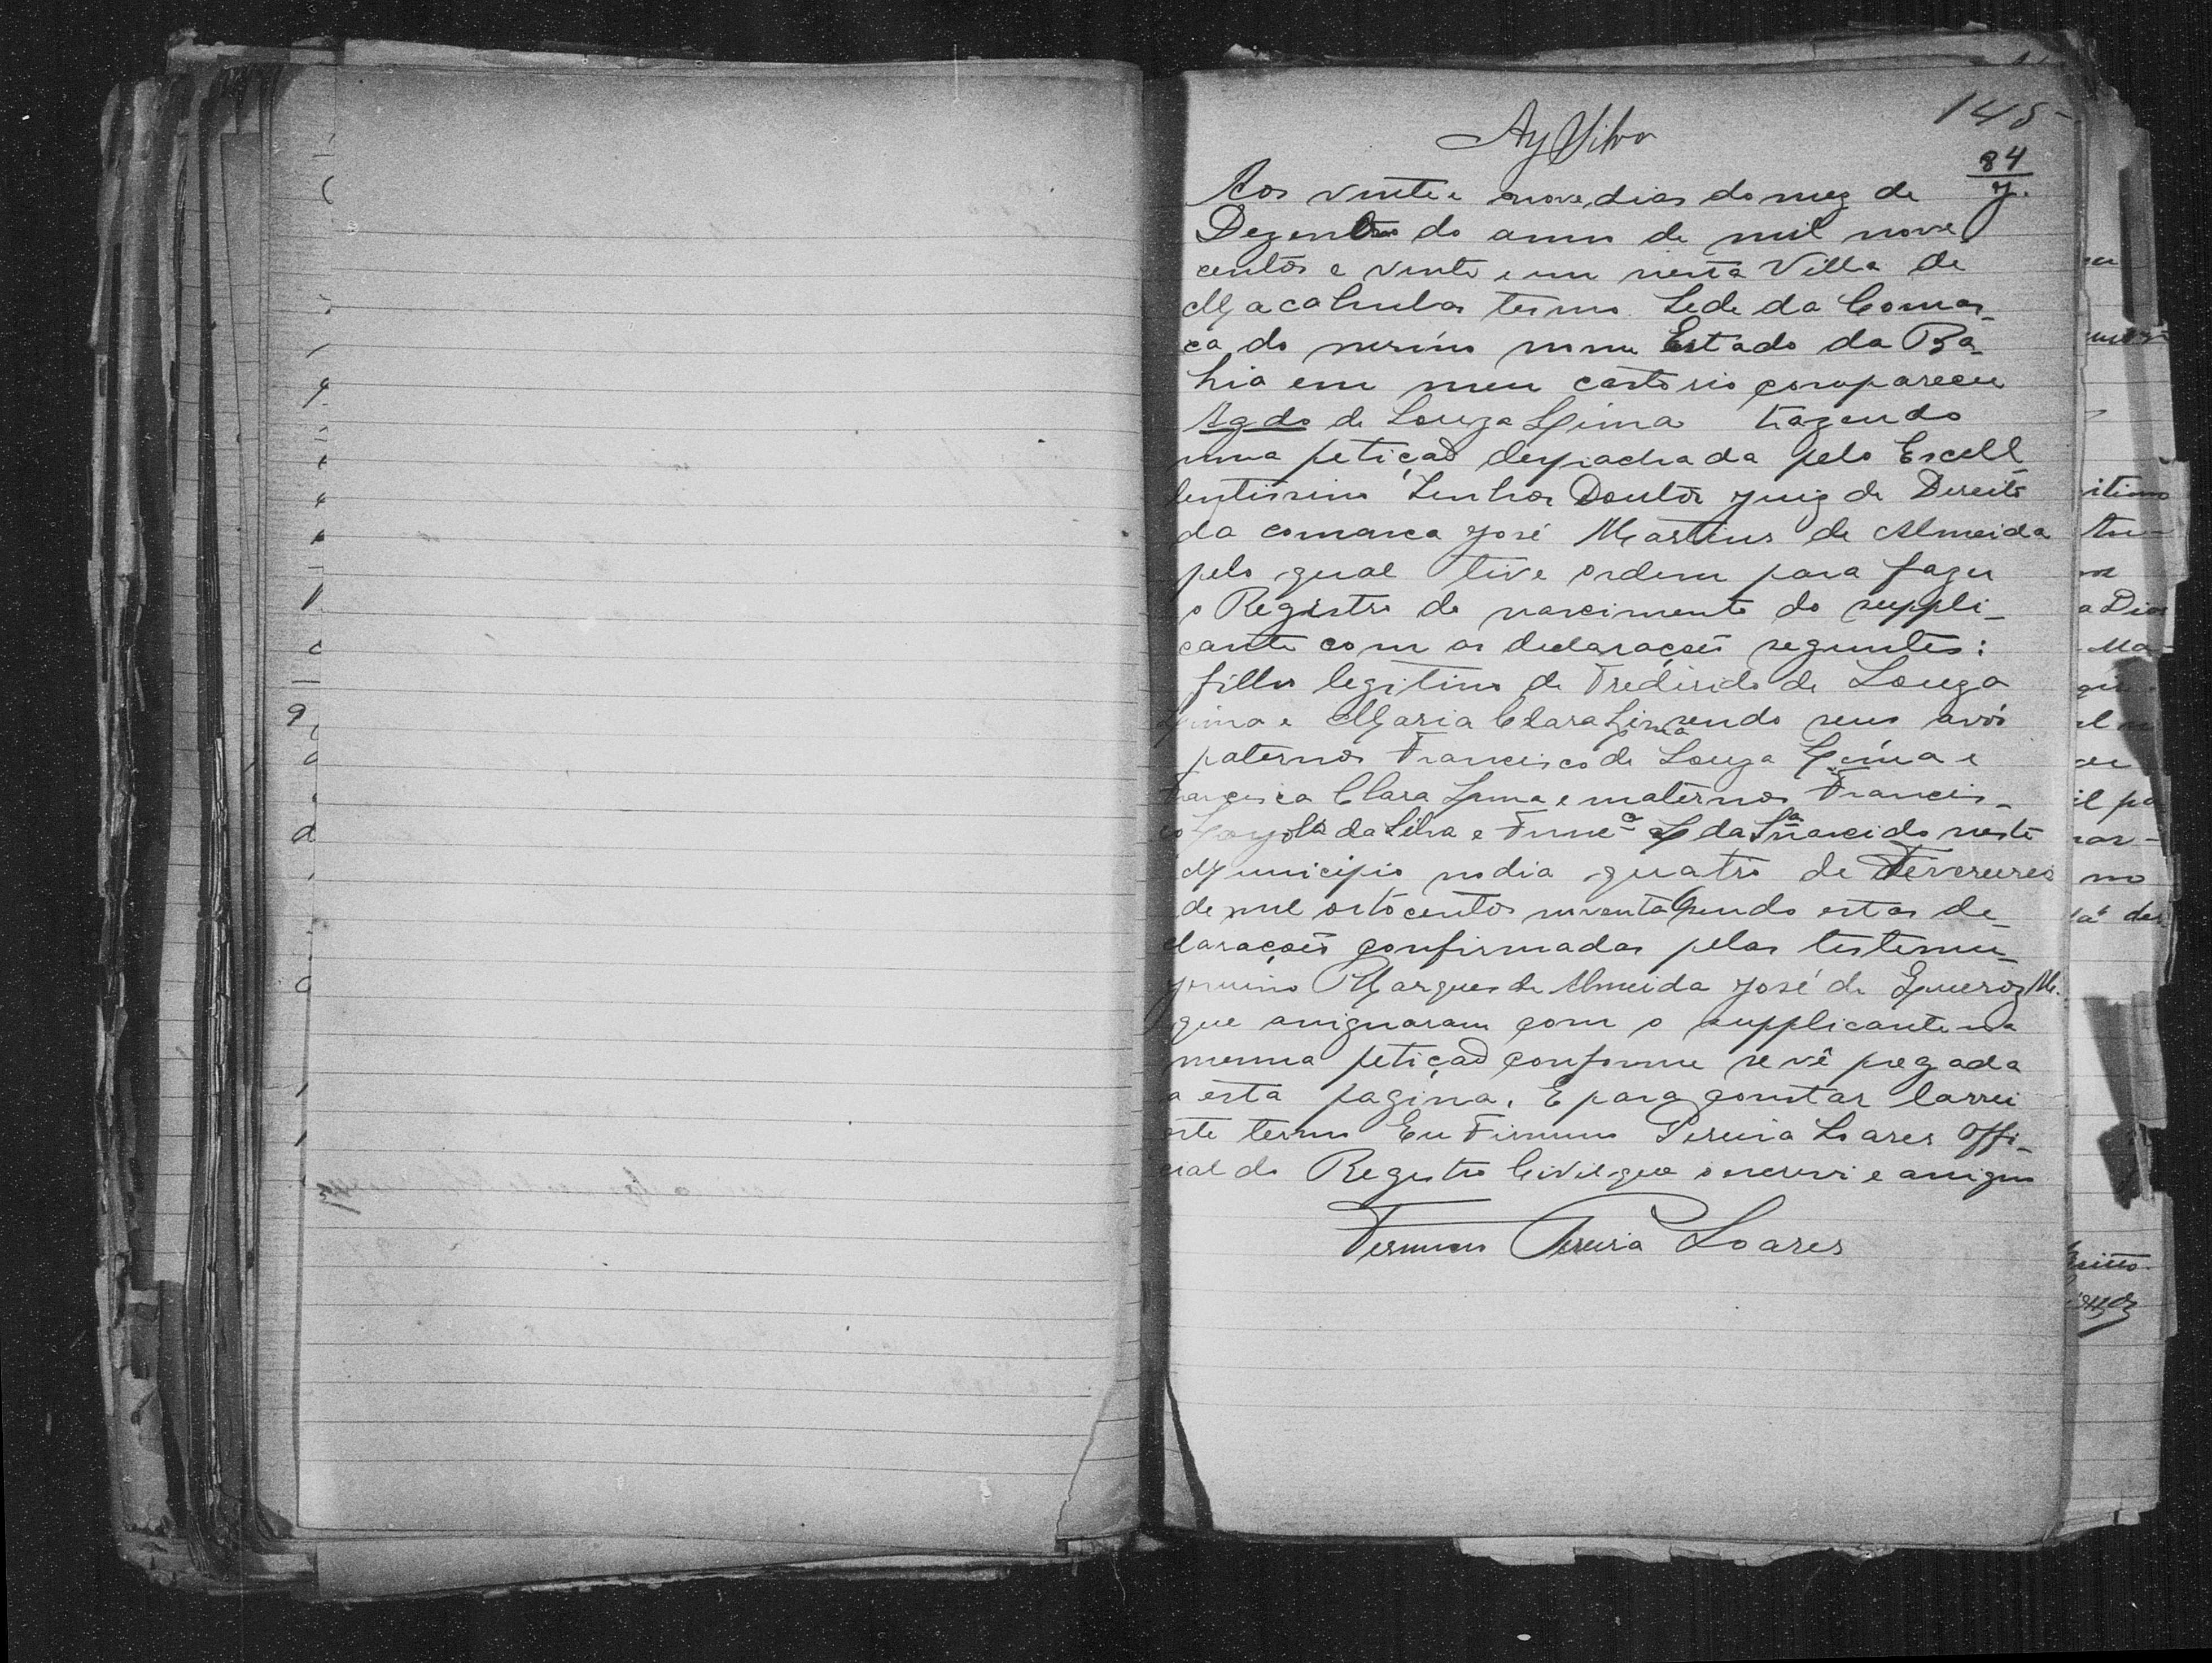 145
Ay Silva
84
Aos vinte e nove dias do mez de
Dezembro do anno de mil nove
centos e vinte e um nesta Villa de
Macahubas termo Sede da Comar_
ca do mesmo nome Estado da Ba_
hia em meu cartorio compareceu
de Souza Lima trazendo
uma petição despachada pelo Excell_
lentissimo Senhor Doutor Juiz de Direito
da comarca José Martins de Almeida
pelo qual tive ordem para fazer
o Registro de nascimento do suppli_
cante com as declarações seguntes:
filho legitimo de de Souza
Lima e Maria Clara Lima sendo seus avós
paternos Francisco de Souza Lima e
Francisca Clara Lima e maternos Francis_
co da Silva e da nascido neste
Municipio no dia quatro de Fevereiro
de mil oitocentos noventa sendo estas de
clarações confirmadas pelas testemu_
Marques de Almeida José de Queiroz M.
que assignaram com o supplicante na
mesma petição conforme se vê pregada
a esta pagina. E para constar lavrei
este termo Eu Firmino Pereira Soares Offi_
cial do Registro Civil que o escrevi e assigno
Firmino Pereira Soares